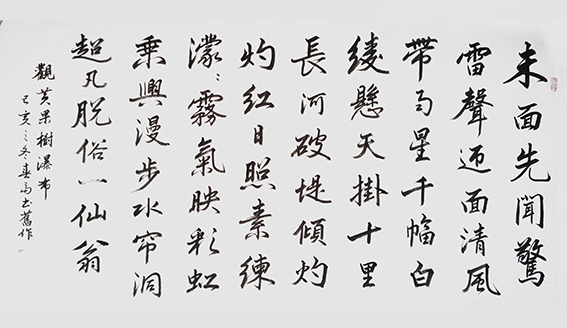 未面先聞驚
雷聲迎面清風
帶雨星千幅白
綾懸天掛十里
長河破堤傾灼
灼紅日照素練
濛〻霧氣映彩虹
乘興漫步水帘洞
超凡脫俗一仙翁
觀黃果樹瀑布
己亥之冬春雨书舊作